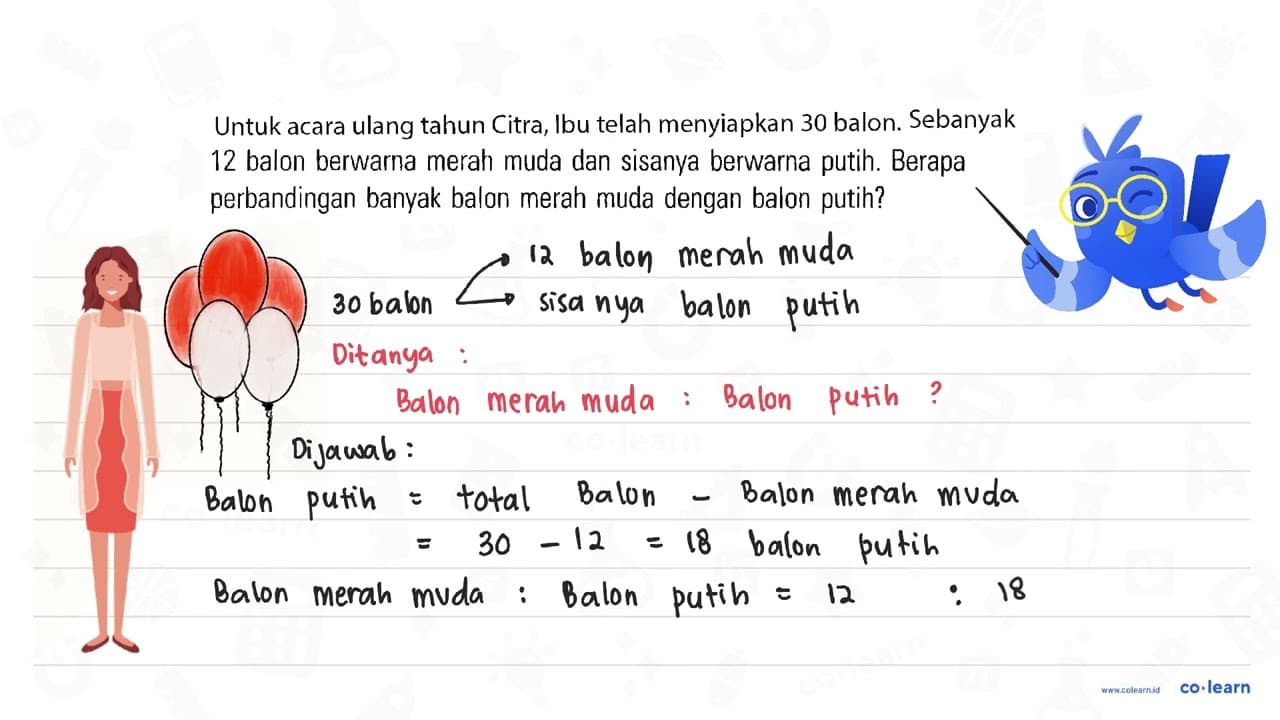 Untuk acara ulang tahun Citra, Ibu telah menyiapkan 30 balon. Sebanyak
12 balon berwarna merah muda dan sisanya berwarna putih. Berapa
perbandingan banyak balon merah muda dengan balon putih?
12 balon merah muda
30 balon
sisanya balon putih
Ditanya :
Balon merah muda : Balon putih ?
Dijawab :
Balon putih = total Balon - Balon merah muda
= 30 - 12 = 18 balon putih
Balon merah muda : Balon putih = 12 : 18
co·learn
co·learn
co·learn
www.colearn.id co·learn